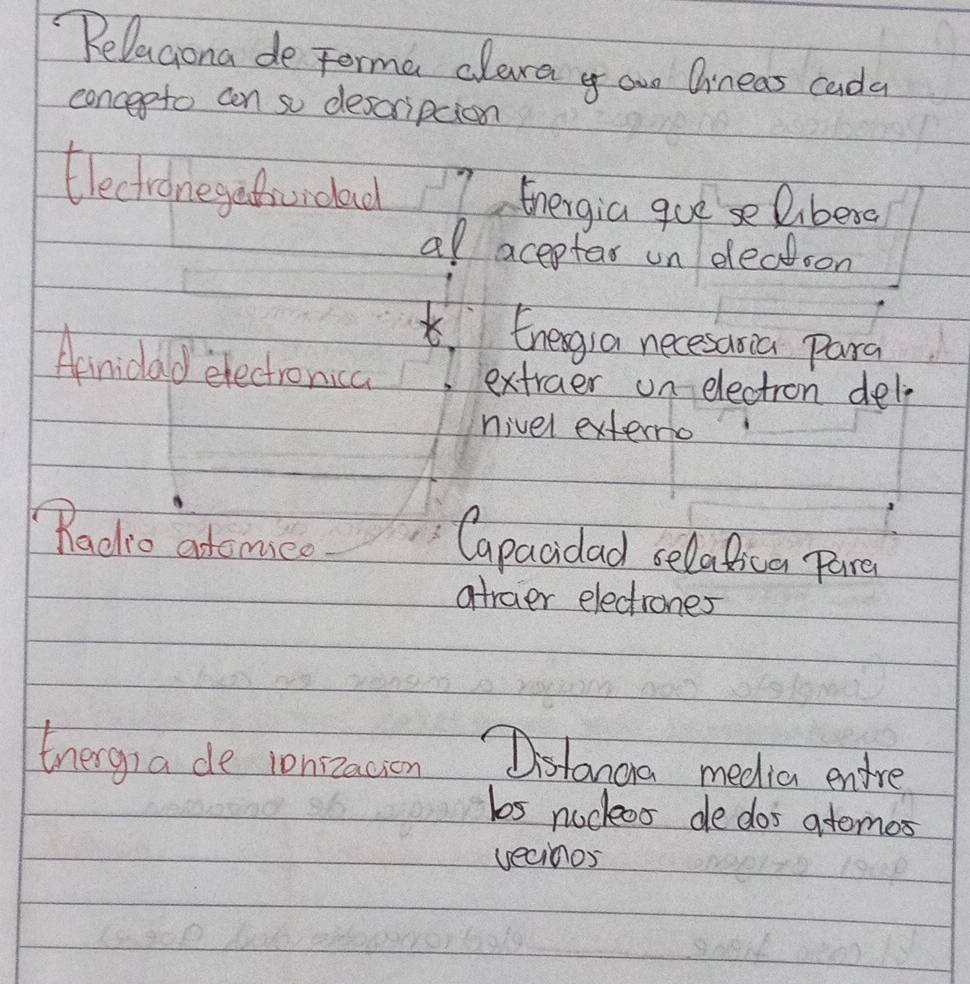 Relaciona de Forma clara y con lineas cada
concepto con su descripcion
Electronegatividad
Energia que se libera
al aceptar un electron
Afinidad electronica
Energia necesaria Para
extraer un electron del
nivel externo
Radio atomico
Capacidad relativa Para
atraer electrones
Energia de ionizacion
Distancia media entre
los nucleos de dos atomos
vecinos